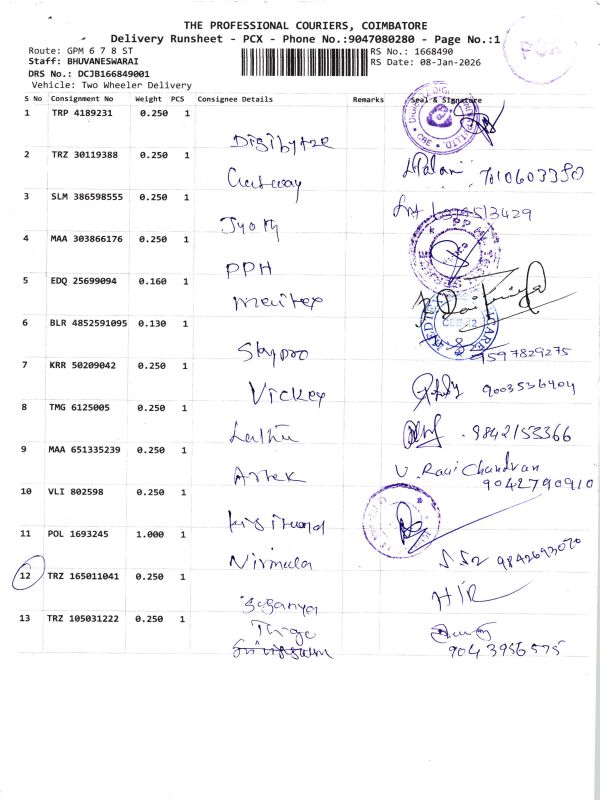 THE PROFESSIONAL COURIERS, COIMBATORE
Delivery Runsheet - PCX - Phone No.:9047080280 - Page No.:1
PCX
Route: GPM 6 7 8 ST
RS No.: 1668490
Staff: BHUVANESWARAI
RS Date: 08-Jan-2026
DRS No.: DCJB166849001
Vehicle: Two Wheeler Delivery
S No Consignment No Weight PCS Consignee Details Remarks Seal & Signature
1 TRP 4189231 0.250 1
Digibytze
2 TRZ 30119388 0.250 1
7010603380
3 SLM 386598555 0.250 1
Jyothi
4 MAA 303866176 0.250 1
PPH
5 EDQ 25699094 0.160 1
Meritex
6 BLR 4852591095 0.130 1
Skypro
9597829275
7 KRR 50209042 0.250 1
Vickey 9003536404
8 TMG 6125005 0.250 1
9842153366
9 MAA 651335239 0.250 1
Artek V. Ravi Chandran
9042790910
10 VLI 802598 0.250 1
11 POL 1693245 1.000 1
Nirmala
12 TRZ 165011041 0.250 1
H/R
13 TRZ 105031222 0.250 1
9043956575